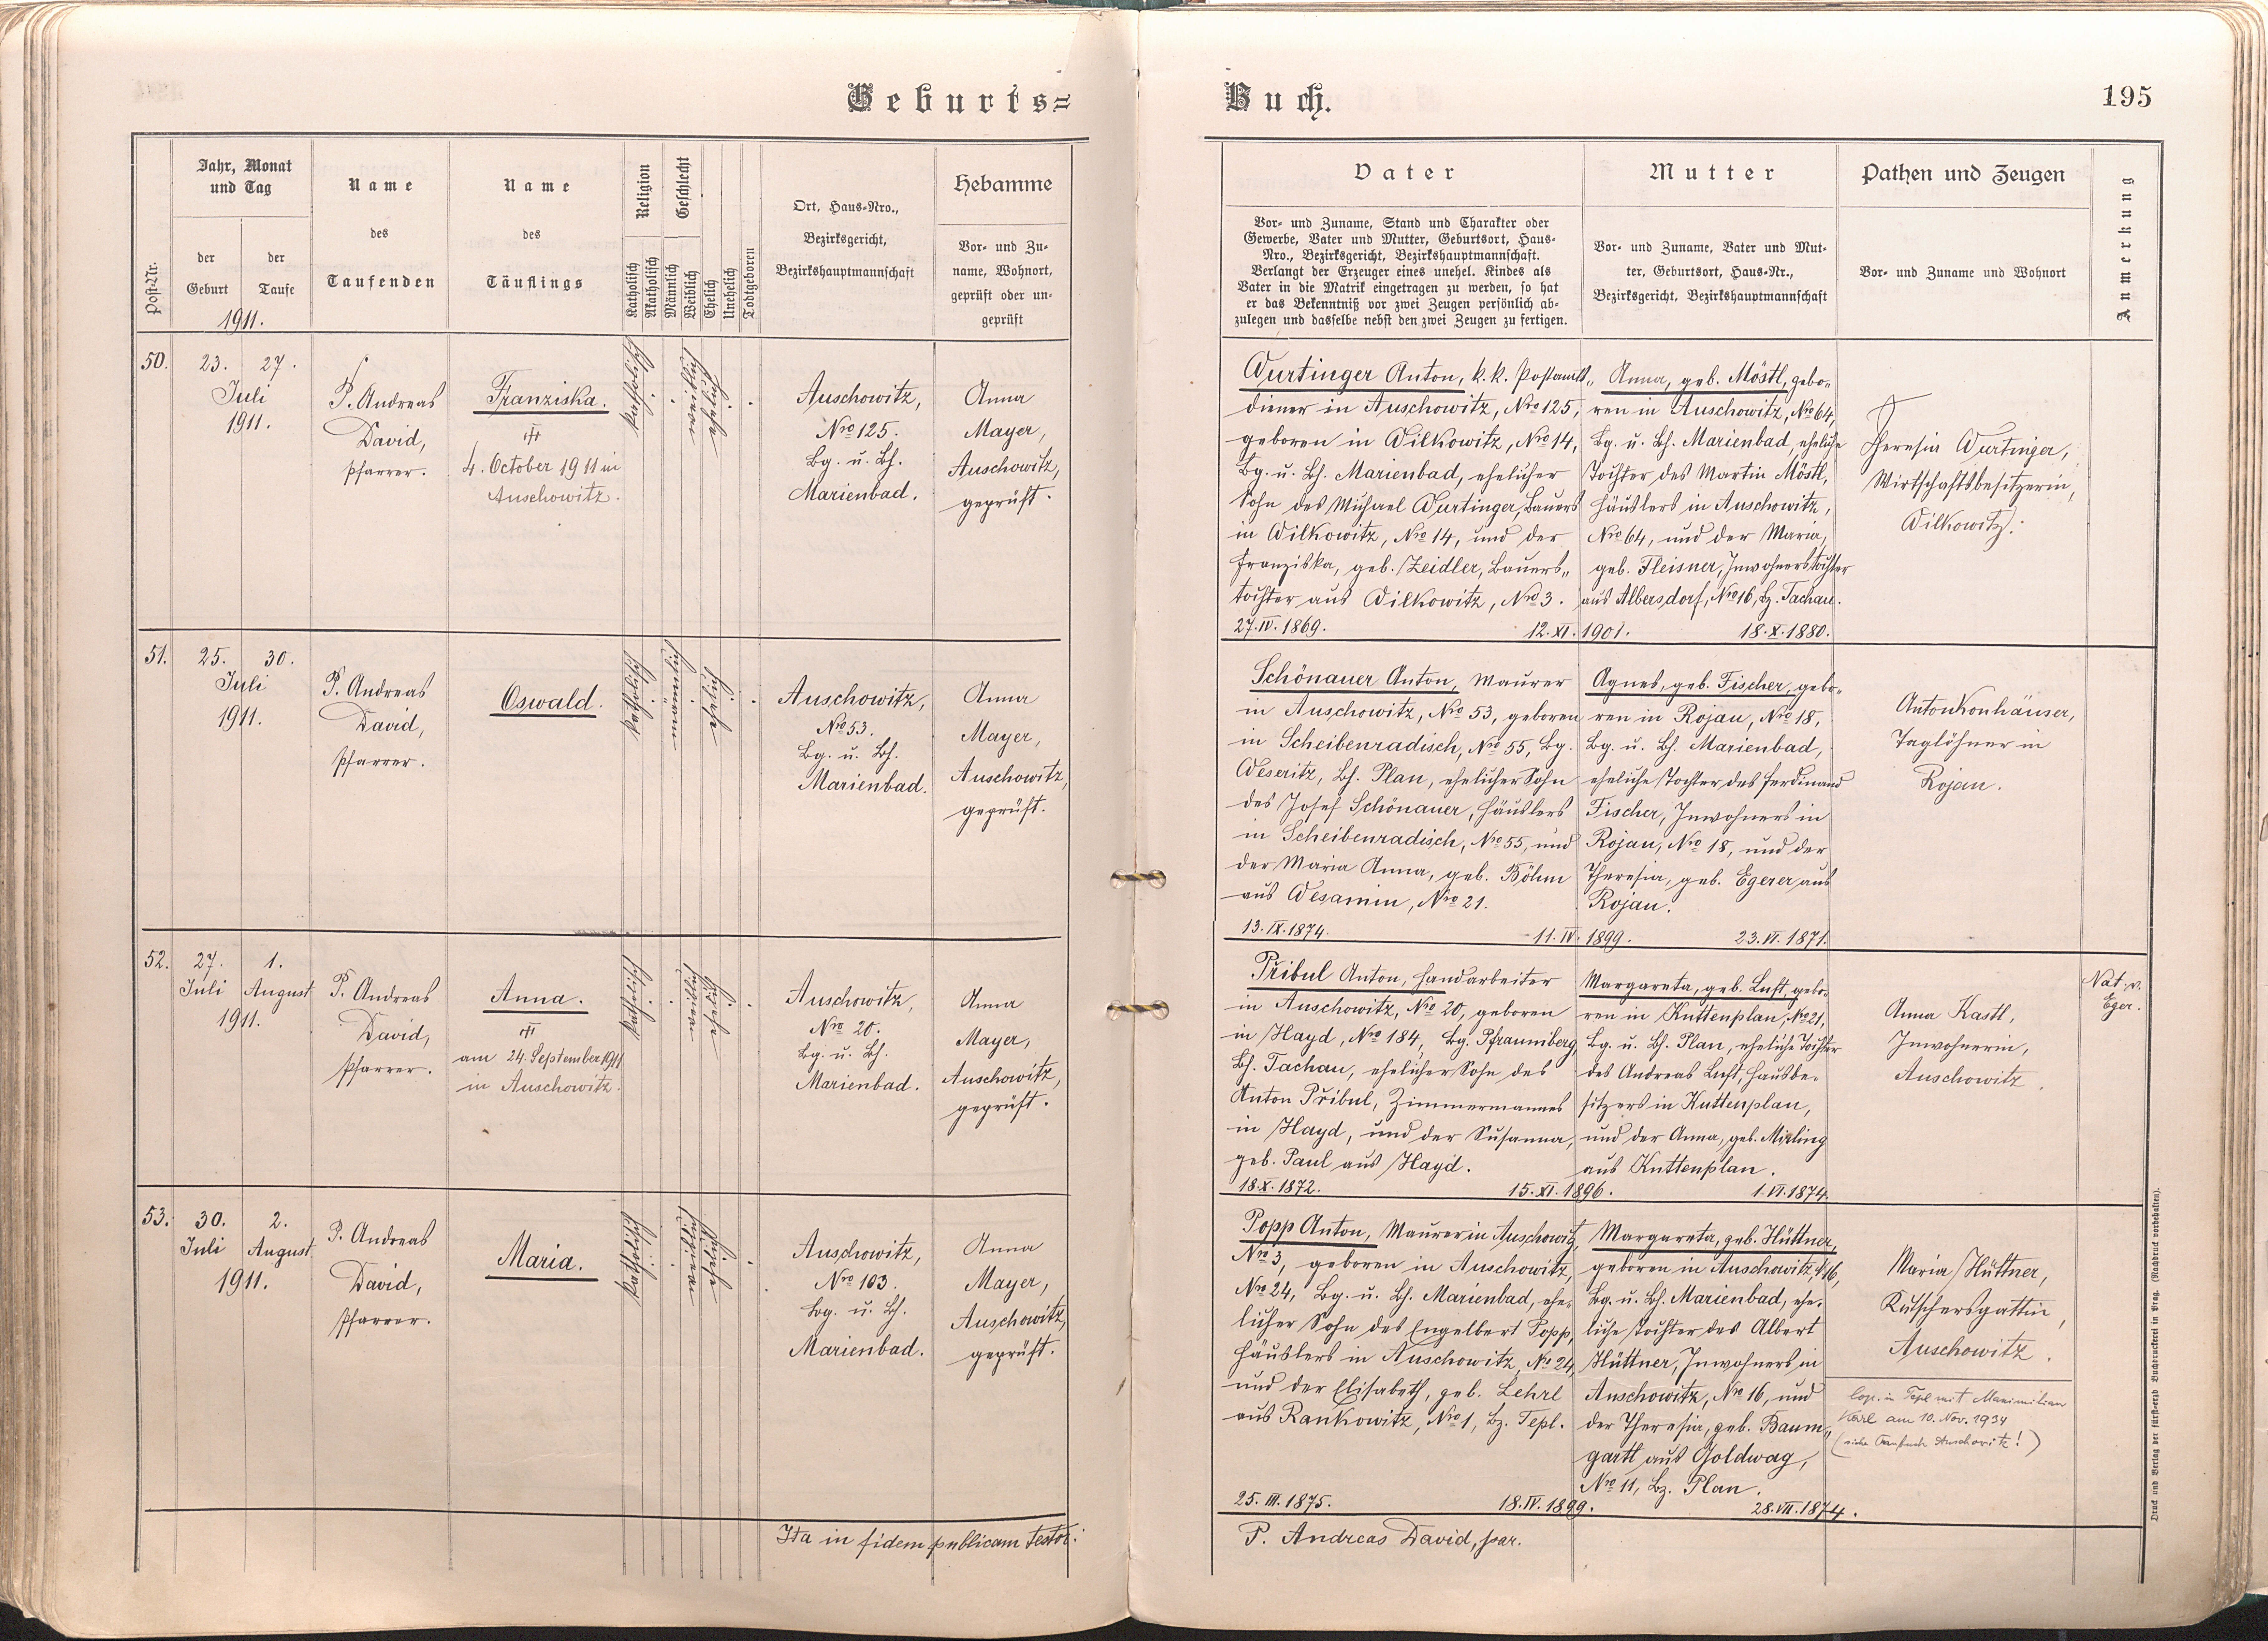 Geburts=
Post-Nr.
Jahr, Monat
und Tag
der
Geburt
der
Taufe
1911.
Name
des
Taufenden
Name
des
Täuflings
Religion
Katholisch
Akatholisch
Geschlecht
Männlich
Weiblich
Ehelich
Unehelich
Todtgeboren
Ort, Haus-Nro.,
Bezirksgericht,
Bezirkshauptmannschaft
Hebamme
Vor- und Zu-
name, Wohnort,
geprüft oder un-
geprüft
50.
23. 27.
Juli
1911.
P. Andreas
David,
Pfarrer.
Franziska.
4. October 1911 in
Auschowitz.
katholisch
weiblich
ehelich
Auschowitz,
Nro 125.
Bg. u. Bh.
Marienbad.
Anna
Mayer,
Auschowitz,
geprüft.
51.
25. 30.
Juli
1911.
P. Andreas
David,
Pfarrer.
Oswald.
katholisch
männlich
ehelich
Auschowitz,
Nro 53.
Bg. u. Bh.
Marienbad.
Anna
Mayer,
Auschowitz,
geprüft.
52.
27. 1.
Juli August
1911.
P. Andreas
David,
Pfarrer.
Anna.
am 24. September 1911
in Auschowitz.
katholisch
weiblich
ehelich
Auschowitz,
Nro 20.
Bg. u. Bh.
Marienbad.
Anna
Mayer,
Auschowitz,
geprüft.
53.
30. 2.
Juli August
1911.
P. Andreas
David,
Pfarrer.
Maria.
katholisch
weiblich
ehelich
Auschowitz,
Nro 103.
Bg. u. Bh.
Marienbad.
Anna
Mayer,
Auschowitz,
geprüft.
Ita in fidem publicam testor:
Buch.
195
Vater
Vor- und Zuname, Stand und Charakter oder
Gewerbe, Vater und Mutter, Geburtsort, Haus-
Nro., Bezirksgericht, Bezirkshauptmannschaft.
Verlangt der Erzeuger eines unehel. Kindes als
Vater in die Matrik eingetragen zu werden, so hat
er das Bekenntniß vor zwei Zeugen persönlich ab-
zulegen und dasselbe nebst den zwei Zeugen zu fertigen.
Mutter
Vor- und Zuname, Vater und Mut-
ter, Geburtsort, Haus-Nr.,
Bezirksgericht, Bezirkshauptmannschaft
Pathen und Zeugen
Vor- und Zuname und Wohnort
Anmerkung
Wurtinger Anton, k. k. Postamts„
diener in Auschowitz, Nro 125,
geboren in Wilkowitz, Nro 14,
Bg. u. Bh. Marienbad, ehelicher
Sohn des Michael Wurtinger, Bauers
in Wilkowitz, Nro 14, und der
Franziska, geb. Zeidler, Bauers„
tochter aus Wilkowitz, Nro 3.
27. IV. 1869.
12. XI. 1901.
Anna, geb. Möstl, gebo„
ren in Auschowitz, Nro 64,
Bg. u. Bh. Marienbad, eheliche
Tochter des Martin Möstl,
Häuslers in Auschowitz,
Nro 64, und der Maria,
geb. Fleisner, Inwohnerstochter
aus Albersdorf, Nro 16, Bz. Tachau.
18. X. 1880.
Theresia Wurtinger,
Wirtschaftsbesitzerin,
Wilkowitz.
Schönauer Anton, Maurer
in Auschowitz, Nro 53, geboren
in Scheibenradisch, Nro 55, Bg.
Weseritz, Bh. Plan, ehelicher Sohn
des Josef Schönauer, Häuslers
in Scheibenradisch, Nro 55, und
der Maria Anna, geb. Böhm
aus Wesamin, Nro 21.
13. IX. 1874.
11. IV. 1899.
Agnes, geb. Fischer, gebo„
ren in Rojau, Nro 18,
Bg. u. Bh. Marienbad,
eheliche Tochter des Ferdinand
Fischer, Inwohners in
Rojau, Nro 18, und der
Theresia, geb. Egerer aus
Rojau.
23. VI. 1871.
Anton Konhäuser,
Taglöhner in
Rojau.
Přibul Anton, Handarbeiter
in Auschowitz, Nro 20, geboren
in Hayd, Nro 184, Bg. Pfraumberg,
Bh. Tachau, ehelicher Sohn des
Anton Přibul, Zimmermannes
in Hayd, und der Susanna,
geb. Paul aus Hayd.
18. X. 1872.
15. XI. 1896.
Margareta, geb. Luft, gebo-
ren in Kuttenplan, No 21,
Bg. u. Bh. Plan, eheliche Tochter
des Andreas Luft, Hausbe-
sitzers in Kuttenplan,
und der Anna, geb.
aus Kuttenplan.
1. VI. 1874.
Anna Kastl,
Inwohnerin,
Auschowitz.
Nat. v.
Eger.
Popp Anton, Maurer in Auschowitz,
Nro 3, geboren in Auschowitz,
Nro 24, Bg. u. Bh. Marienbad, ehe-
licher Sohn des Engelbert Popp,
Häuslers in Auschowitz, No 24,
und der Elisabeth, geb. Lehrl
aus Rankowitz, Nro 1, Bz. Tepl.
25. III. 1875.
18. IV. 1899.
Margareta, geb. Hüttner,
geboren in Auschowitz, No 16,
Bg. u. Bh. Marienbad, ehe-
liche Tochter des Albert
Hüttner, Inwohners in
Auschowitz, Nro 16, und
der Theresia, geb. Baum„
gartl aus Goldwag,
Nro 11, Bz. Plan.
28. VII. 1874.
Maria Hüttner,
Kutschersgattin,
Auschowitz.
Cop. in Tepl mit Maximilian
Karl am 10. Nov. 1934
(siehe Taufbuch Auschowitz!)
P. Andreas David, par.
Druck und Verlag der fürst-erzb Buchdruckerei in Prag. (Nachdruck vorbehalten).